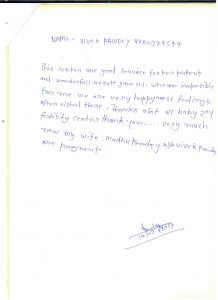 NAME - VIVEK PANDEY
This center are good service for her patient
and wonderfull result gave us where are impossible
for me. we are very happyness feelings
after visited there. Thanks alot all baby joy
fertility center thank you.... very much
now my wife. madhu Pandey w/o vivek Pandey
are pregment.